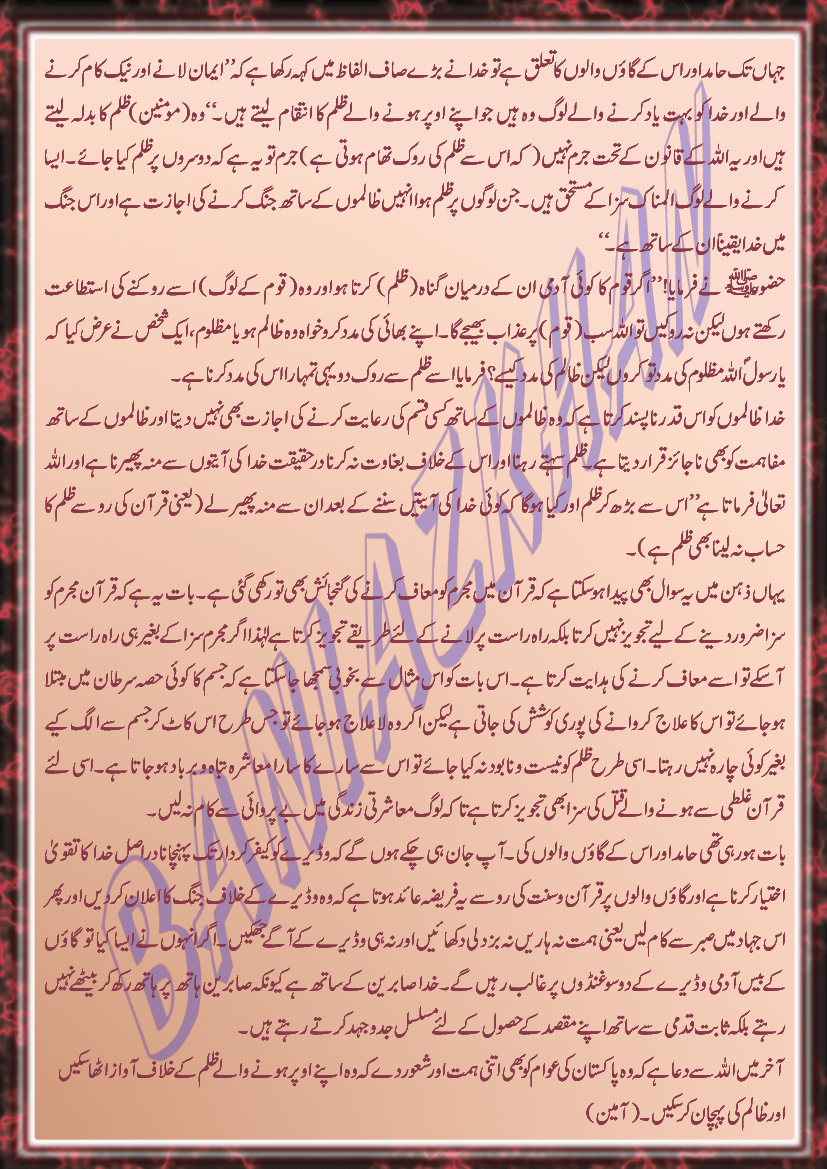 جہاں تک حامد اور اس کے گاؤں والوں کا تعلق ہے تو خدا نے بڑے صاف الفاظ میں کہہ رکھا ہے کہ ’’ایمان لانے اور نیک کام کرنے
والے اور خدا کو بہت یاد کرنے والے لوگ وہ ہیں جو اپنے اوپر ہونے والے ظلم کا انتقام لیتے ہیں۔‘‘ وہ (مومنین) ظلم کا بدلہ لیتے
ہیں اور یہ اللہ کے قانون کے تحت جرم نہیں (کہ اس سے ظلم کی روک تھام ہوتی ہے) جرم تو یہ ہے کہ دوسروں پر ظلم کیا جائے۔ ایسا
کرنے والے لوگ المناک سزا کے مستحق ہیں۔ جن لوگوں پر ظلم ہوا انہیں ظالموں کے ساتھ جنگ کرنے کی اجازت ہے اور اس جنگ
میں خدا یقیناً ان کے ساتھ ہے۔‘‘
حضور ﷺ نے فرمایا! ’’اگر قوم کا کوئی آدمی ان کے درمیان گناہ (ظلم) کرتا ہو اور وہ (قوم کے لوگ) اسے روکنے کی استطاعت
رکھتے ہوں لیکن نہ روکیں تو اللہ سب (قوم) پر عذاب بھیجے گا۔ اپنے بھائی کی مدد کرو خواہ وہ ظالم ہو یا مظلوم، ایک شخص نے عرض کیا کہ
یا رسولؐ اللہ مظلوم کی مدد تو کروں لیکن ظالم کی مدد کیسے؟ فرمایا اسے ظلم سے روک دو یہی تمہارا اس کی مدد کرنا ہے۔
خدا ظالموں کو اس قدر ناپسند کرتا ہے کہ وہ ظالموں کے ساتھ کسی قسم کی رعایت کرنے کی اجازت بھی نہیں دیتا اور ظالموں کے ساتھ
مفاہمت کو بھی ناجائز قرار دیتا ہے۔ ظلم سہتے رہنا اور اس کے خلاف بغاوت نہ کرنا در حقیقت خدا کی آیتوں سے منہ پھیرنا ہے اور اللہ
تعالیٰ فرماتا ہے ’’اس سے بڑھ کر ظلم اور کیا ہوگا کہ کوئی خدا کی آیتیں سننے کے بعد ان سے منہ پھیر لے (یعنی قرآن کی رو سے ظلم کا
حساب نہ لینا بھی ظلم ہے)۔
یہاں ذہن میں یہ سوال بھی پیدا ہو سکتا ہے کہ قرآن میں مجرم کو معاف کرنے کی گنجائش بھی تو رکھی گئی ہے۔ بات یہ ہے کہ قرآن مجرم کو
سزا ضرور دینے کے لیے تجویز نہیں کرتا بلکہ راہ راست پر لانے کے لئے طریقے تجویز کرتا ہے لہٰذا اگر مجرم سزا کے بغیر ہی راہ راست پر
آسکے تو اسے معاف کرنے کی ہدایت کرتا ہے۔ اس بات کو اس مثال سے بخوبی سمجھا جا سکتا ہے کہ جسم کا کوئی حصہ سرطان میں مبتلا
ہو جائے تو اس کا علاج کروانے کی پوری کوشش کی جاتی ہے لیکن اگر وہ لاعلاج ہو جائے تو جس طرح اس کاٹ کر جسم سے الگ کیے
بغیر کوئی چارہ نہیں رہتا۔ اسی طرح ظلم کو نیست و نابود نہ کیا جائے تو اس سے سارے کا سارا معاشرہ تباہ و برباد ہو جاتا ہے۔ اسی لئے
قرآن غلطی سے ہونے والے قتل کی سزا بھی تجویز کرتا ہے تاکہ لوگ معاشرتی زندگی میں بے پروائی سے کام نہ لیں۔
بات ہو رہی تھی حامد اور اس کے گاؤں والوں کی۔ آپ جان ہی چکے ہوں گے کہ وڈیرے کو کیفر کردار تک پہنچانا دراصل خدا کا تقویٰ
اختیار کرنا ہے اور گاؤں والوں پر قرآن و سنت کی رو سے یہ فریضہ عائد ہوتا ہے کہ وہ وڈیرے کے خلاف جنگ کا اعلان کر دیں اور پھر
اس جہاد میں صبر سے کام لیں یعنی ہمت نہ ہاریں نہ بزدلی دکھائیں اور نہ ہی وڈیرے کے آگے جھکیں۔ اگر انہوں نے ایسا کیا تو گاؤں
کے بیس آدمی وڈیرے کے دو سو غنڈوں پر غالب رہیں گے۔ خدا صابرین کے ساتھ ہے کیونکہ صابرین ہاتھ پر ہاتھ رکھ کر بیٹھے نہیں
رہتے بلکہ ثابت قدمی سے ساتھ اپنے مقصد کے حصول کے لئے مسلسل جدوجہد کرتے رہتے ہیں۔
آخر میں اللہ سے دعا ہے کہ وہ پاکستان کی عوام کو بھی اتنی ہمت اور شعور دے کہ وہ اپنے اوپر ہونے والے ظلم کے خلاف آواز اٹھا سکیں
اور ظالم کی پہچان کر سکیں۔ (آمین)
BANIAZKHAN